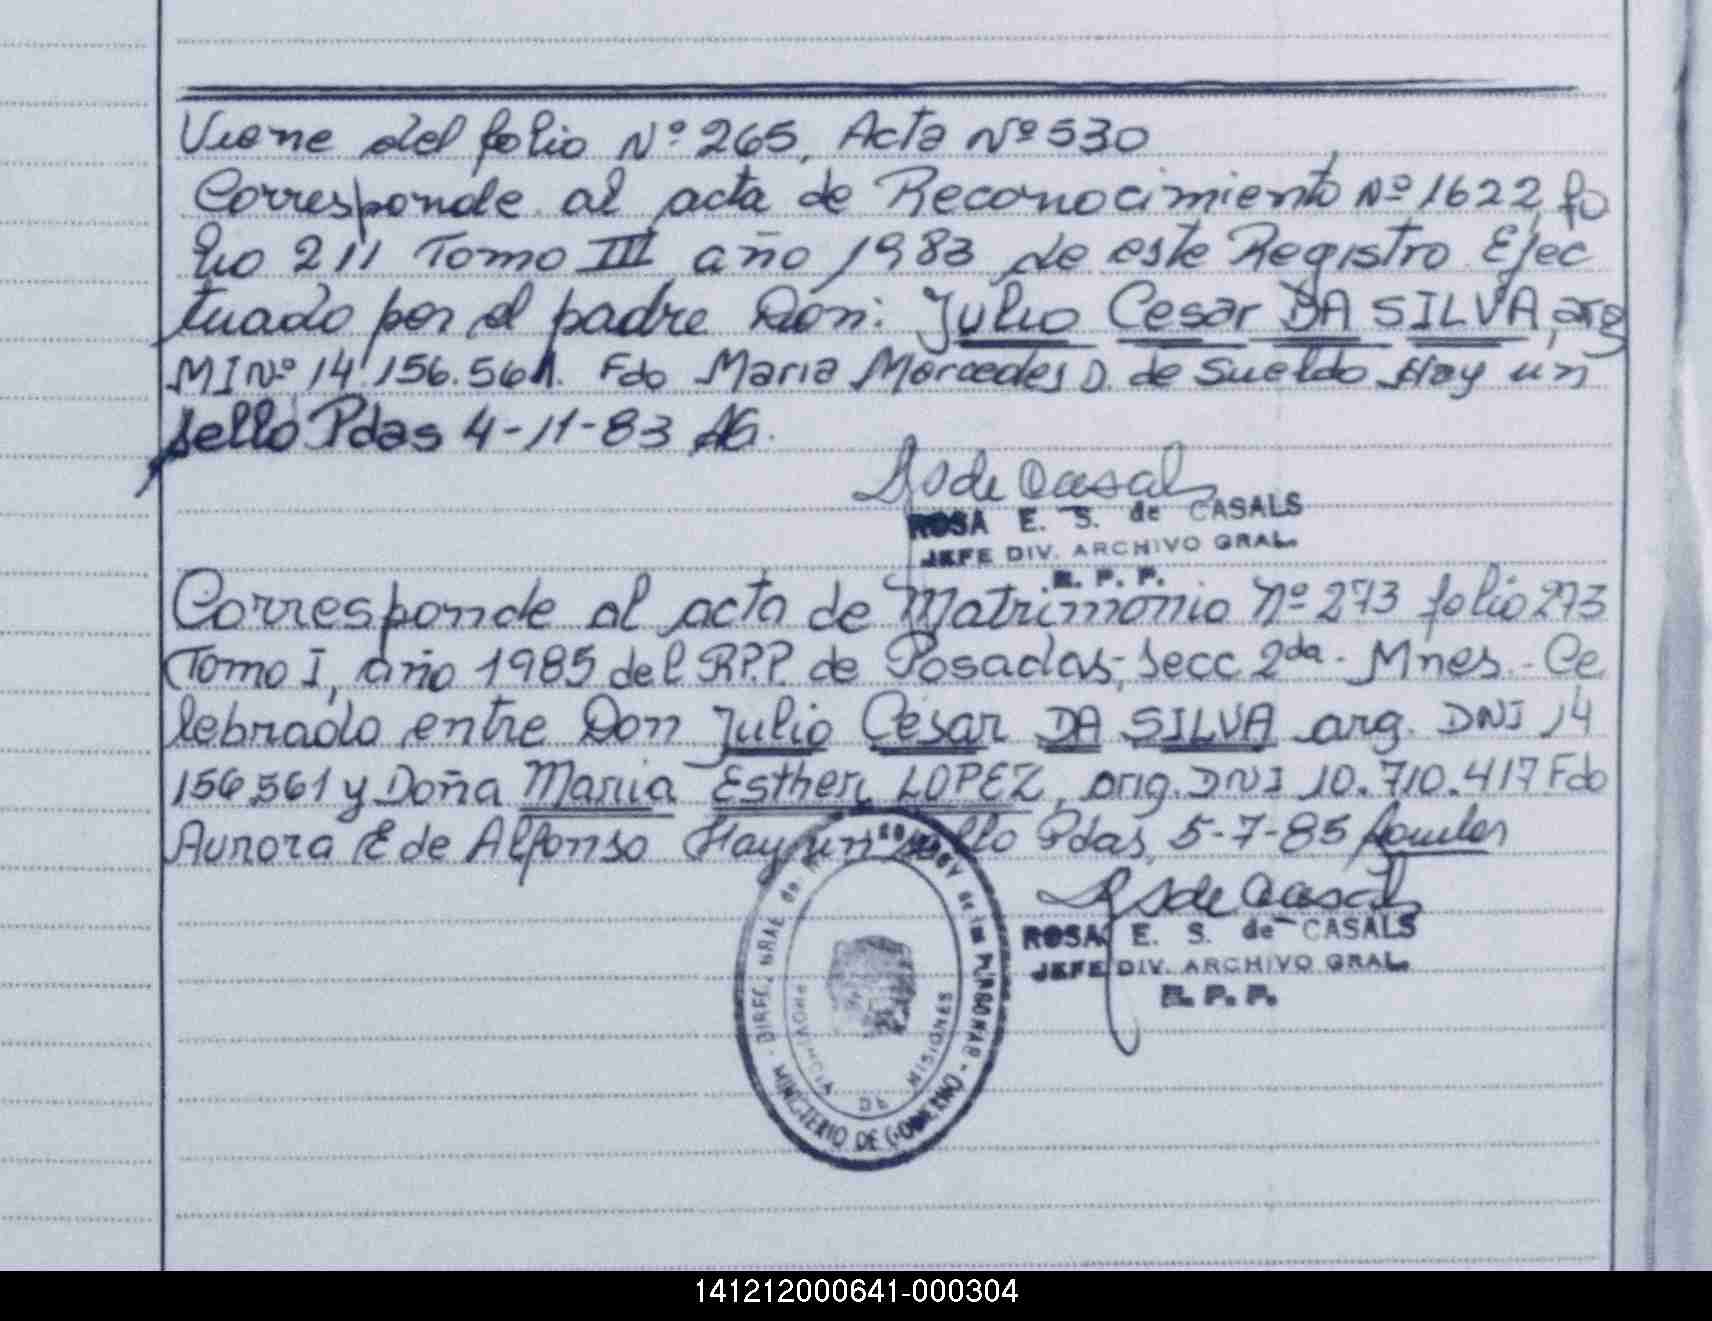 Viene del folio Nº 265, Acta Nº 530
Corresponde al acta de Reconocimiento Nº 1622, fo
lio 211 Tomo III año 1983 de este Registro Efec
tuado por el padre Don: Julio Cesar DA SILVA, arg
MI Nº 14.156.561. Fdo Maria Mercedes D. de Sueldo Hay un
sello Pdas 4-11-83
S de Casals
ROSA E. S. de CASALS
JEFE DIV. ARCHIVO GRAL.
R. P. P.
Corresponde al acta de Matrimonio Nº 273 folio 273
Tomo I, año 1985 del R.P.P. de Posadas, Secc 2da. Mnes. Ce
lebrado entre Don Julio César DA SILVA arg. DNI 14
156.561 y Doña Maria Esther LOPEZ, arg. DNI 10.710.417 Fdo
Aurora E de Alfonso Hay un sello Pdas, 5-7-85
S de Casals
ROSA E. S. de CASALS
JEFE DIV. ARCHIVO GRAL.
R. P. P.
de las PERSONAS - MINISTERIO DE GOBIERNO -
PROVINCIA DE MISIONES
141212000641-000304